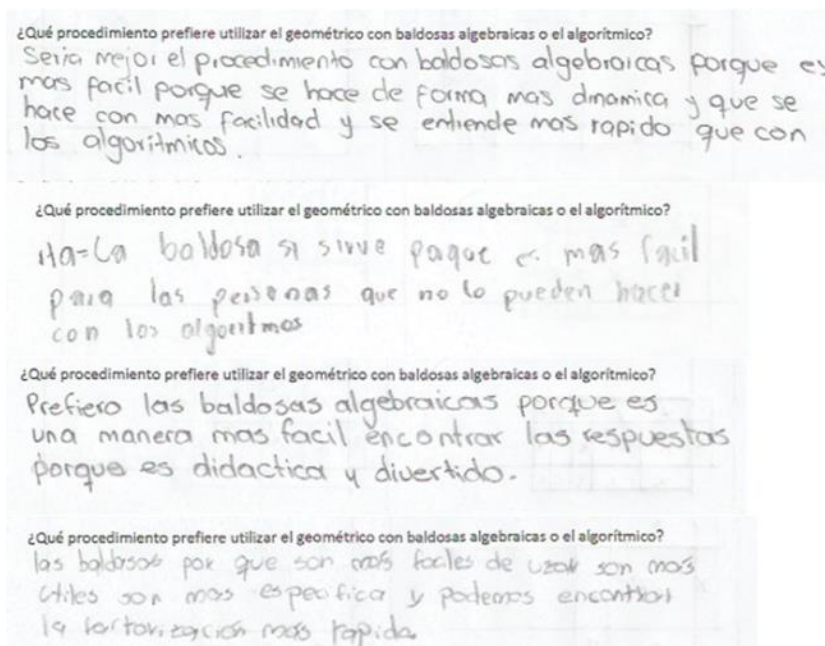 ¿Qué procedimiento prefiere utilizar el geométrico con baldosas algebraicas o el algorítmico?
Seria mejor el procedimiento con baldosas algebraicas porque es
mas facil porque se hace de forma mas dinamica y que se
hace con mas facilidad y se entiende mas rapido que con
los algoritmicos.
¿Qué procedimiento prefiere utilizar el geométrico con baldosas algebraicas o el algorítmico?
La baldosa si sirve mas facil
para las personas que no lo pueden hacer
con los algoritmos
¿Qué procedimiento prefiere utilizar el geométrico con baldosas algebraicas o el algorítmico?
Prefiero las baldosas algebraicas porque es
una manera mas facil encontrar las respuestas
porque es didactica y divertido.
¿Qué procedimiento prefiere utilizar el geométrico con baldosas algebraicas o el algorítmico?
las baldosas por que son más faciles de uzar son mas
utiles son mas especifica y podemos encontrar
la mas rapida